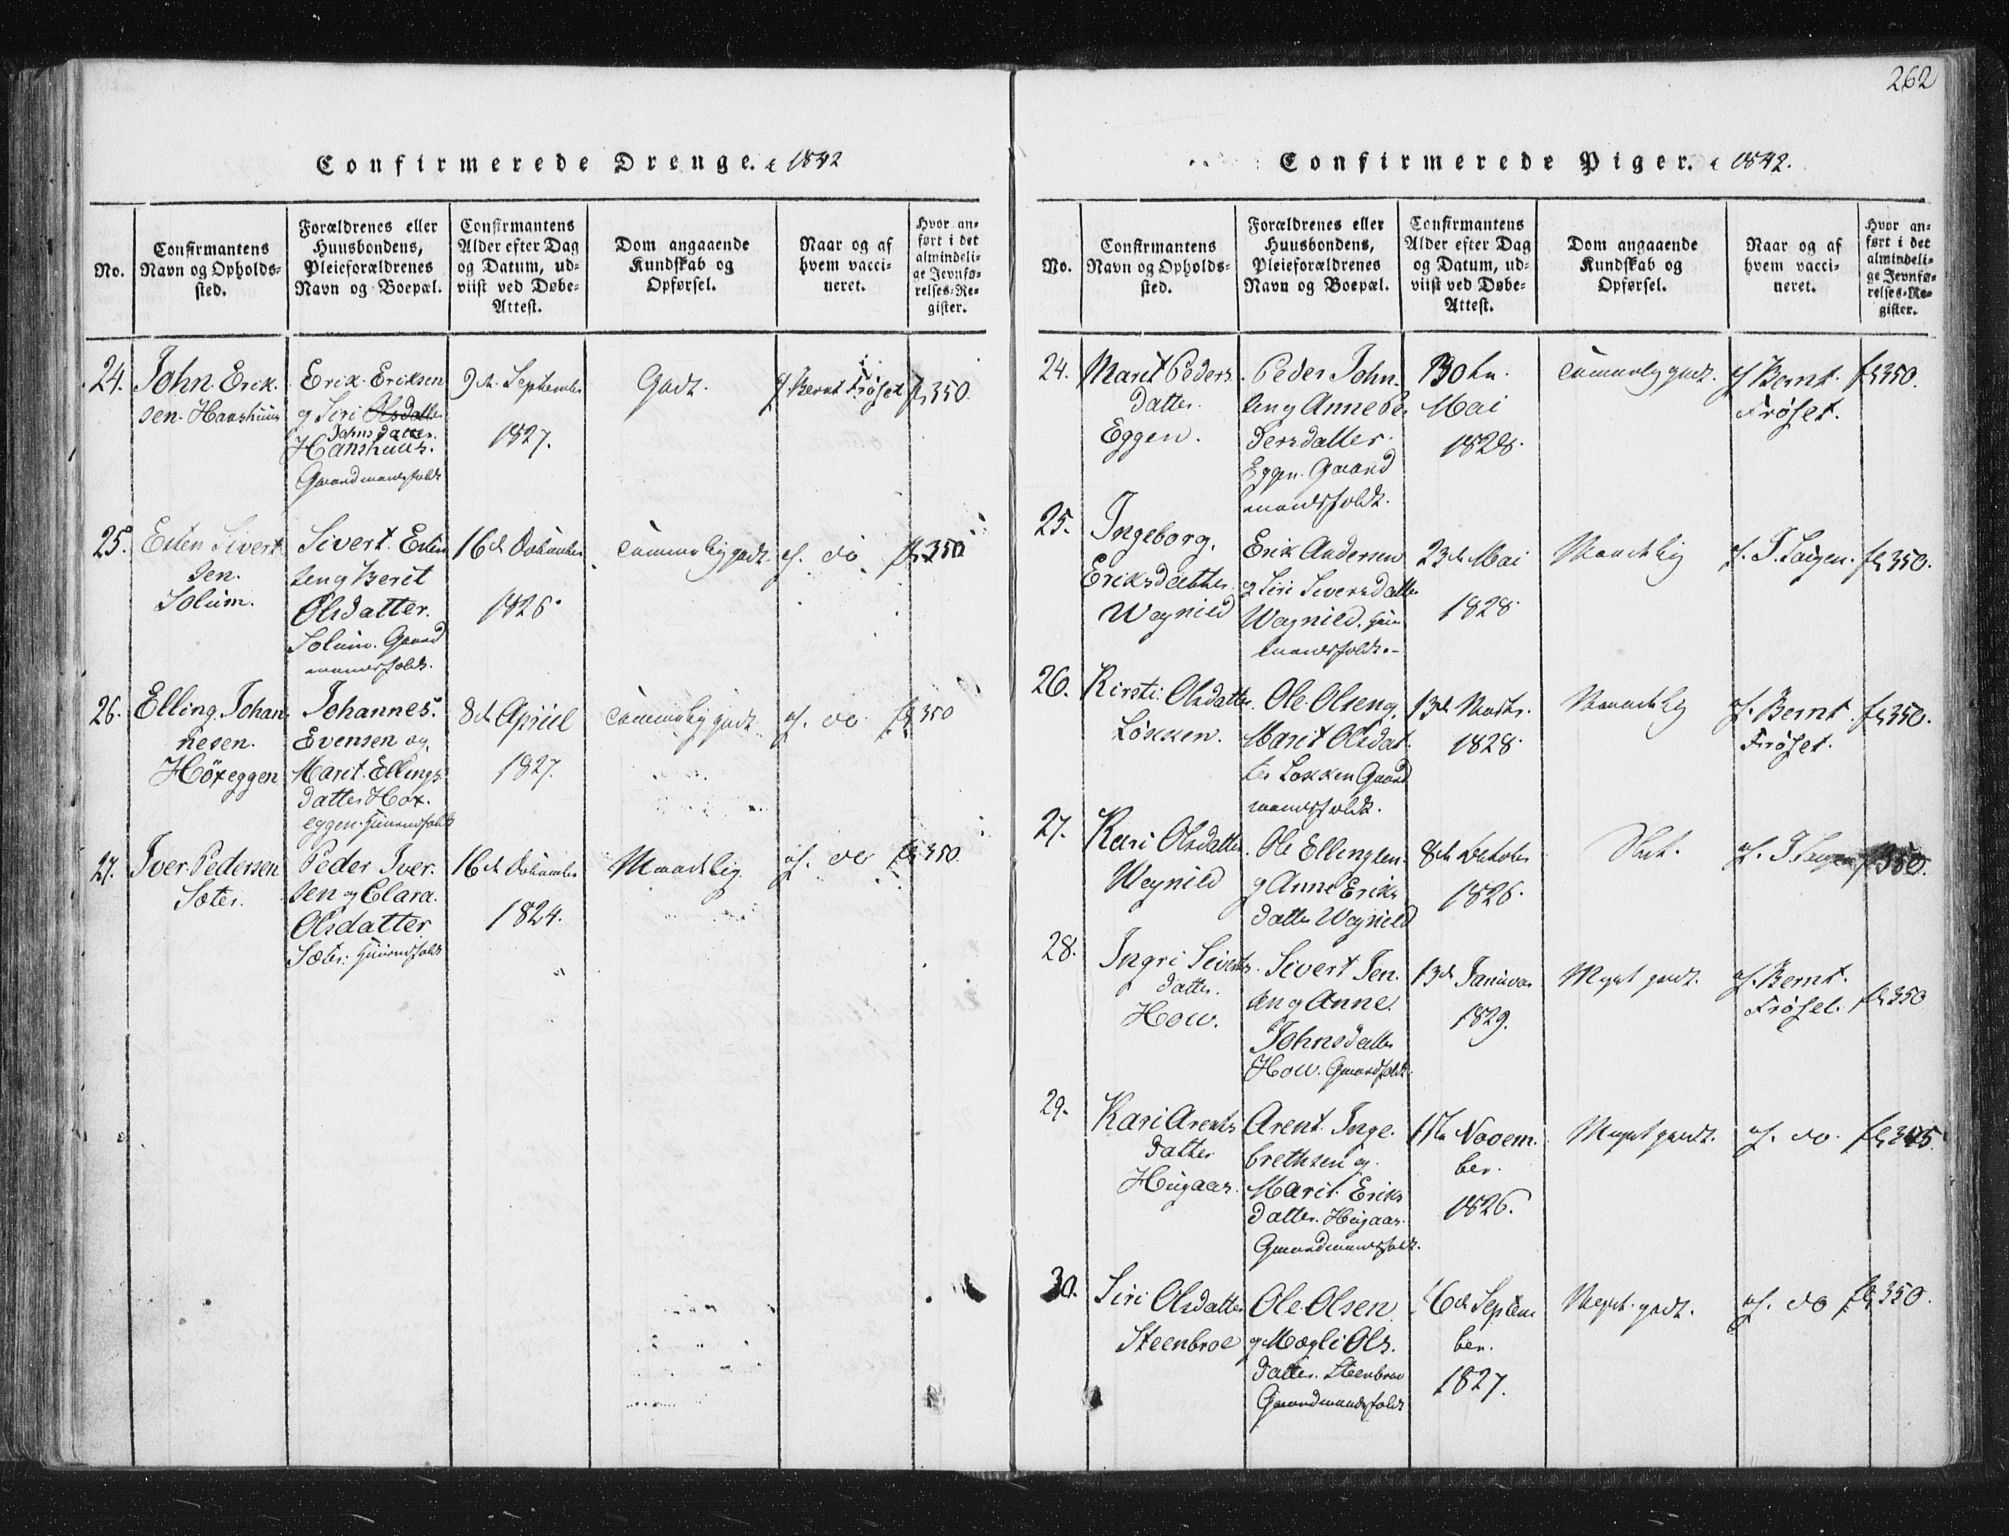 262
Confirmerede Drenge. 1842
No.
Confirmantens
Navn og Opholds-
sted.
Forældrenes eller
Huusbondens,
Pleieforældrenes
Navn og Boepæl.
Confirmantens
Alder efter Dag
og Datum, ud-
viist ved Døbe-
Attest.
Dom angaaende
Kundskab og
Opførsel.
Naar og af
hvem vacci-
neret.
Hvor an-
ført i det
almindeli-
ge Jevnfø-
relses-Re-
gister.
24.
John Erik.
sen. Hanshuus
Erik Eriksen
og Siri Olsdatter
Johnsdatter.
Hanshuus.
Gaardmandsfolk
9de September
1827.
Godt.
af Bernt Frøset
fl 350.
25.
Esten Sivert
sen.
Solum.
Sivert Esten
sen og Berit
Olsdatter.
Solum. Gaard
mandsfolk.
16de
1826.
Temmelig godt
af. do.
fl 350
26.
Elling Johan
nesen.
Høxeggen
Johannes.
Evensen og
Marit Ellings
datter Høx.
eggen.
8de Apriil
1827.
Temmelig godt
af. do
fl 350
27.
Iver Pedersen
Sæter.
Peder Iver.
sen og Clara.
Olsdatter
Sæter.
16de
1824.
Maadelig
af. do
fl 350.
Confirmerede Piger. 1842.
No.
Confirmantens
Navn og Opholds-
sted.
Forældrenes eller
Huusbondens,
Pleieforældrenes
Navn og Boepæl.
Confirmantens
Alder efter Dag
og Datum, ud-
viist ved Døbe-
Attest.
Dom angaaende
Kundskab og
Opførsel.
Naar og af
hvem vacci-
neret.
Hvor an-
ført i det
almindeli-
ge Jevnfø-
relses-Re-
gister.
24.
Marit Peders
datter.
Eggen.
Peder John.
sen og Anne Pe
dersdatter.
Eggen. Gaard
mandsfolk.
Mai
1828.
Temmelig godt.
af Bernt.
Frøset.
fl 350.
25.
Ingeborg.
Eriksdatter
Wagnild
Erik Andersen
og Siri Siversdatter
Wagnild.
mandsfolk.
23de Mai
1828
Maadelig
af. J. Laigen.
fl 350.
26.
Kirsti Olsdatter
Løkken.
Ole Olsen og
Marit Olsdat.
ter Løkken Gaard
mandsfolk.
13de Marts.
1828.
Maadelig
af. Bernt
Frøset.
fl 350.
27.
Kari Olsdatter
Wagnild
Ole Ellingsen.
og Anne Eriks
datter Wagnild
8de
1826.
Slet.
af. J Laigen
fl 350.
28.
Ingri Siverts
datter.
How.
Sivert Jen.
sen og Anne
Johnsdatter
How. Gaardfolk.
13de Januar
1829.
Meget godt.
af. Bernt.
Frøset.
fl 350
29.
Kari Arents
datter
Hugaas.
Arent Inge.
brethsen og
Marit Eriks
datter. Hugaas.
Gaardmandsfolk.
17de Novem.
ber.
1826.
Meget godt.
af. do.
30.
Siri Olsdatter
Steenbroe
Ole Olsen
og Magli Ols.
datter. Steenbroe
Gaardmandsfolk
16de Septem
ber.
1827.
Meget godt.
af. do
fl 350.